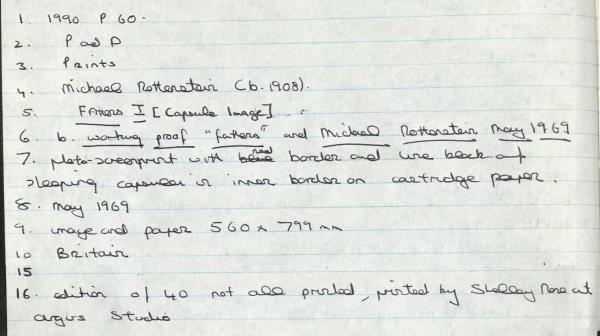 1. 1990 P 60.
2. P and D
3. Prints
4. Michael Rothenstein (b. 1908).
5. Fathers I [Capsule Image]
6 b. working proof "fathers" and Michael Rothenstein May 1969
7. photo-screenprint with red border and line block of
sleeping capsules in inner border on cartridge paper.
8. May 1969
9. image and paper 560 x 799 mm
10 Britain
15
16. edition of 40 not all printed, printed by Shelley Rose at
argus Studio